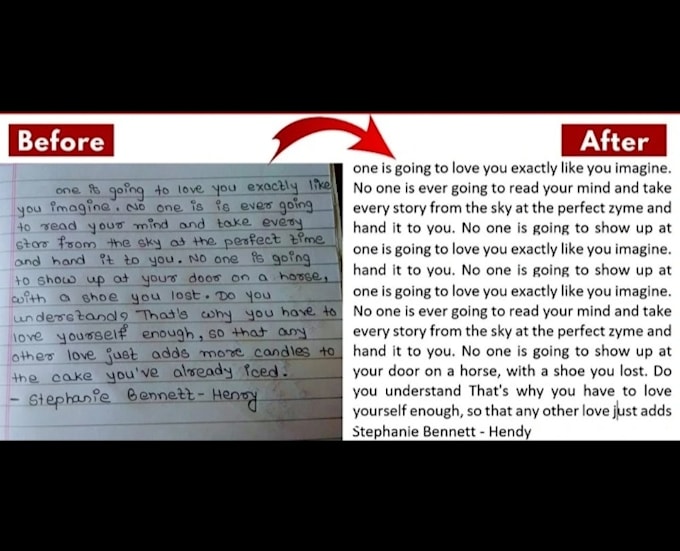 Before
After
one is going to love you exactly like
you imagine. No one is is ever going
to read your mind and take every
star from the sky at the perfect time
and hand it to you. No one is going
to show up at your door on a horse,
with a shoe you lost. Do you
understand? That's why you have to
love yourself enough, so that any
other love just adds more candles to
the cake you've already iced.
- Stephanie Bennett-Henry
one is going to love you exactly like you imagine.
No one is ever going to read your mind and take
every story from the sky at the perfect zyme and
hand it to you. No one is going to show up at
one is going to love you exactly like you imagine.
hand it to you. No one is going to show up at
one is going to love you exactly like you imagine.
No one is ever going to read your mind and take
every story from the sky at the perfect zyme and
hand it to you. No one is going to show up at
your door on a horse, with a shoe you lost. Do
you understand That's why you have to love
yourself enough, so that any other love just adds
Stephanie Bennett - Hendy